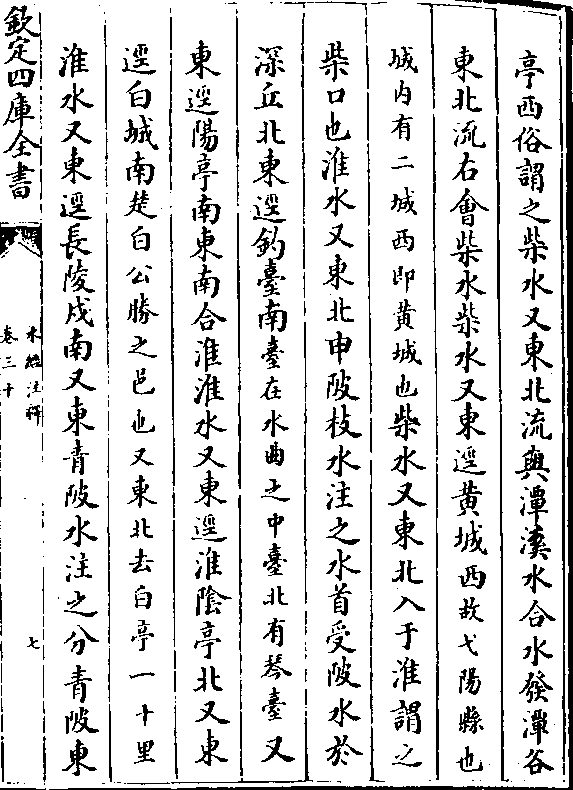 亭西俗謂之柴水又東北流與潭溪水合水發潭谷
東北流右會柴水柴水又東逕黄城西故弋陽縣也
城内有二城西即黄城也柴水又東北入于淮謂之
柴口也淮水又東北申陂枝水注之水首受陂水於
深丘北東逕釣臺南臺在水曲之中臺北有琴臺又
東逕陽亭南東南合淮淮水又東逕淮陰亭北又東
逕白城南楚白公勝之邑也又東北去白亭一十里
淮水又東逕長陵戍南又東青陂水注之分青陂東
欽定四庫全書
水經注釋
卷三十
七